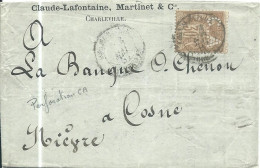 Claude-Lafontaine, Martinet & Cie.
CHARLEVILLE.
A
La Banque O. Chenon
Perforation CA
à Cosne
Nièvre